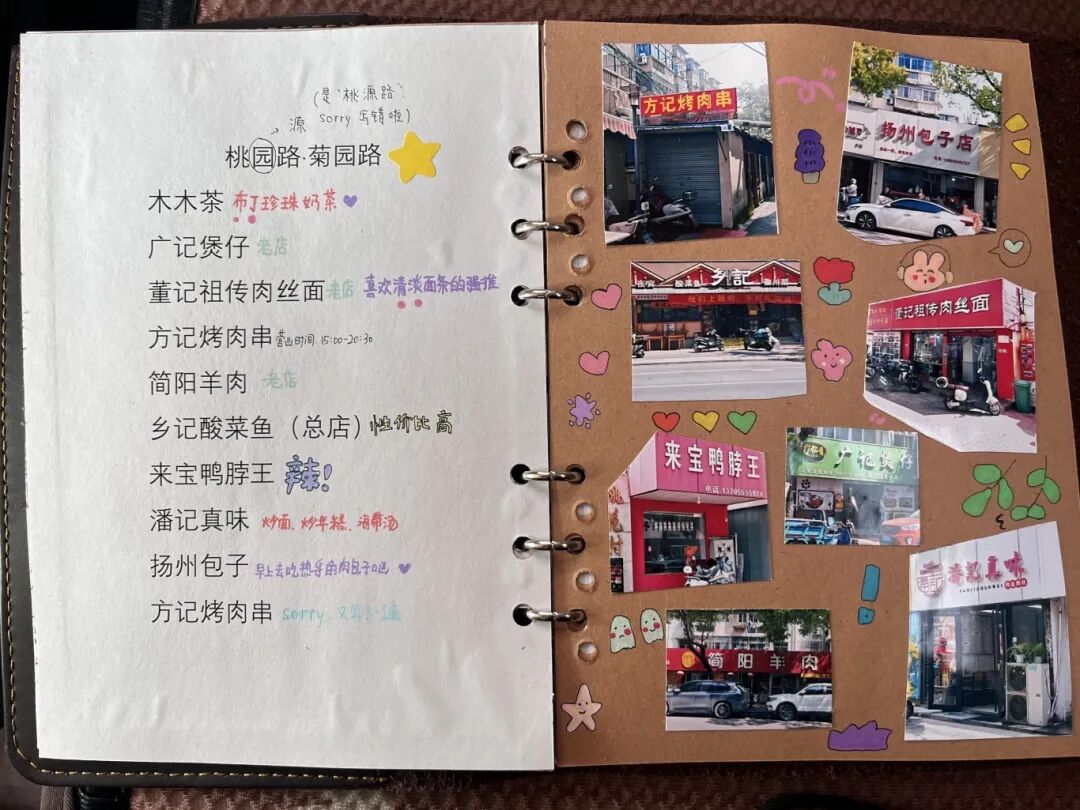 (是'桃源路'
sorry 写错啦)
源
桃园路·菊园路
木木茶 布丁珍珠奶茶
广记煲仔 老店
董记祖传肉丝面 老店 喜欢清淡面条的强推
方记烤肉串 营业时间:15:00-20:30
简阳羊肉 老店
乡记酸菜鱼（总店） 性价比高
来宝鸭脖王 辣!
潘记真味 炒面、炒年糕、海带汤
扬州包子 早上去吃热乎的肉包子吧
方记烤肉串 sorry,又写了一遍
方记烤肉串
扬州包子店
酸菜鱼 乡記
董记祖传肉丝面
来宝鸭脖王
电话:13705555934
广记煲仔
潘记真味
简阳羊肉